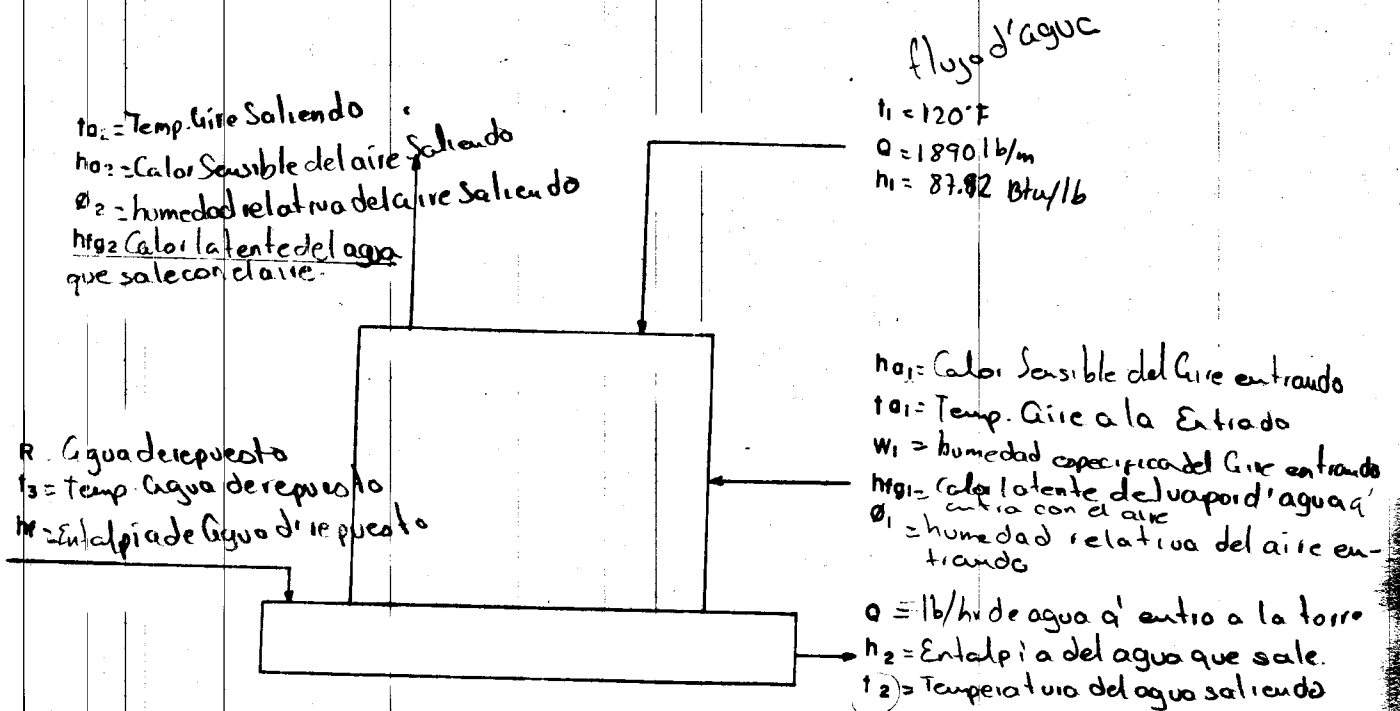 flujo d'agua
t₁ = 120°F
Q = 1890 lb/m
h₁ = 87.92 Btu/lb
ta₂ = Temp. Aire Saliendo
ha₂ = Calor Sensible del aire Saliendo
Ø₂ = humedad relativa del aire Saliendo
hfg₂ Calor latente del agua
que sale con el aire.
ha₁ = Calor Sensible del Aire entrando
ta₁ = Temp. Aire a la Entrada
W₁ = humedad especifica del Aire entrando
hfg₁ = Calor latente del vapor d'agua q'
entra con el aire
Ø₁ = humedad relativa del aire en-
trando
R. Agua de repuesto
t₃ = Temp. Agua de repuesto
hf = Entalpia de Agua d'repuesto
Q = lb/hr de agua q' entro a la torre
h₂ = Entalpia del agua que sale.
t₂ = Temperatura del agua saliendo